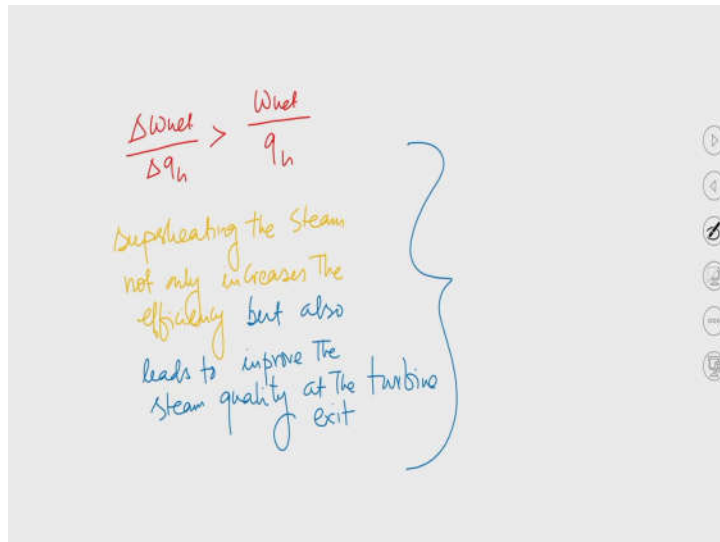 ΔWnet / Δqh > Wnet / qh
Superheating the steam
not only increases the
efficiency but also
leads to inprove the
steam quality at the turbine
exit